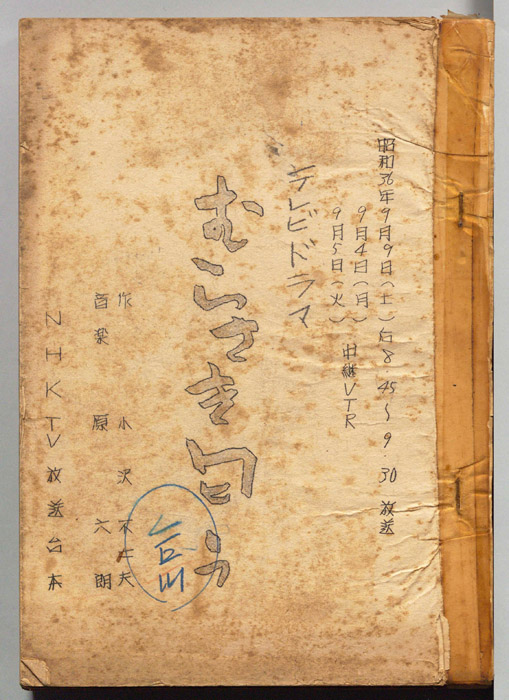 昭和36年9月9日(土)后8 45〜9 30 放送
9月4日(月)
9月5日(火)
中継VTR
テレビドラマ
むらさき匂う
作 小沢不二夫
音楽 原 六朗
NHKTV放送台本